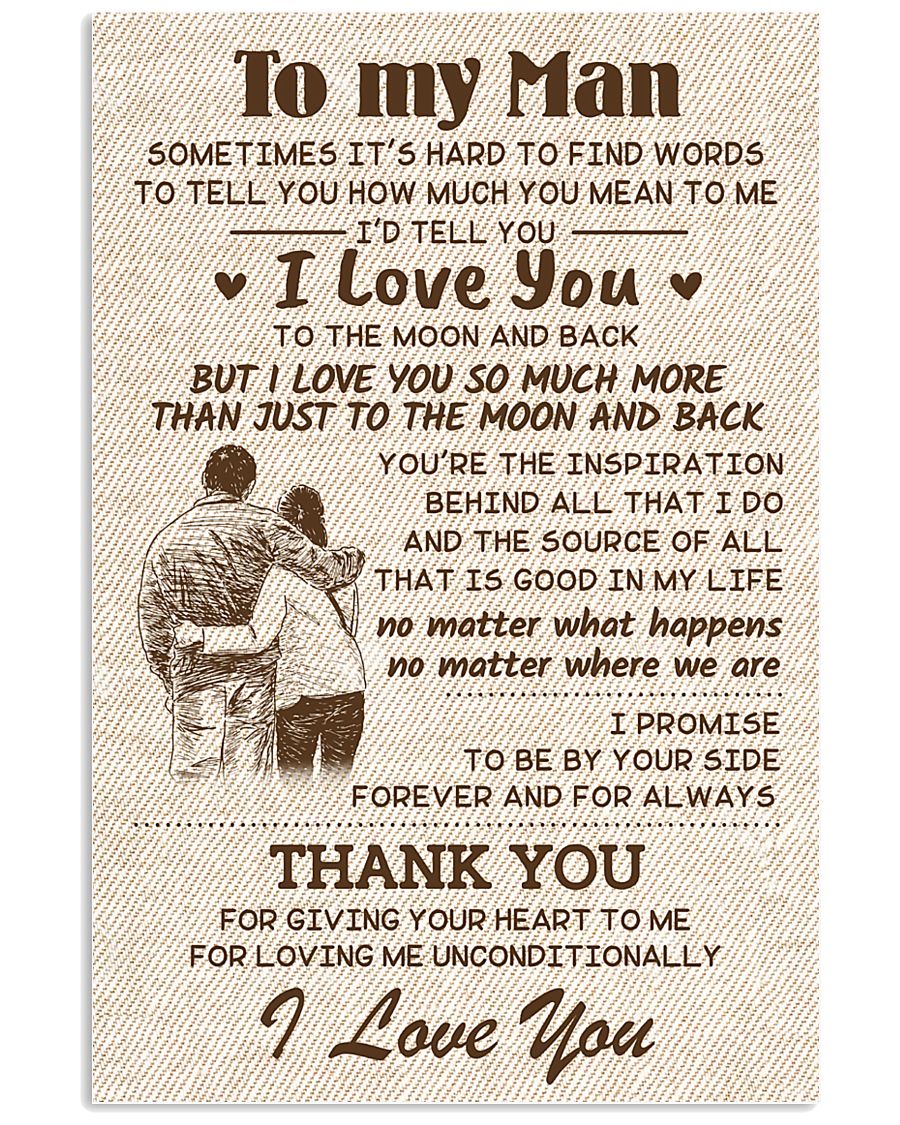 To my Man
SOMETIMES IT'S HARD TO FIND WORDS
TO TELL YOU HOW MUCH YOU MEAN TO ME
I'D TELL YOU
I Love You
TO THE MOON AND BACK
BUT I LOVE YOU SO MUCH MORE
THAN JUST TO THE MOON AND BACK
YOU'RE THE INSPIRATION
BEHIND ALL THAT I DO
AND THE SOURCE OF ALL
THAT IS GOOD IN MY LIFE
no matter what happens
no matter where we are
I PROMISE
TO BE BY YOUR SIDE
FOREVER AND FOR ALWAYS
THANK YOU
FOR GIVING YOUR HEART TO ME
FOR LOVING ME UNCONDITIONALLY
I Love You